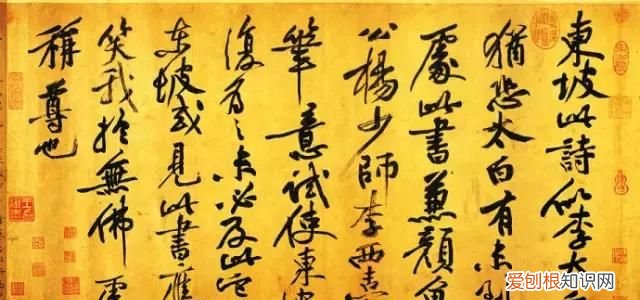 東坡此詩似李太
猶恐太白有未到
處此書兼顏魯
公楊少師李西臺
筆意試使東坡
復為之未必及此它
東坡或見此書應
笑我於無佛處
稱尊也
爱刨根知识网